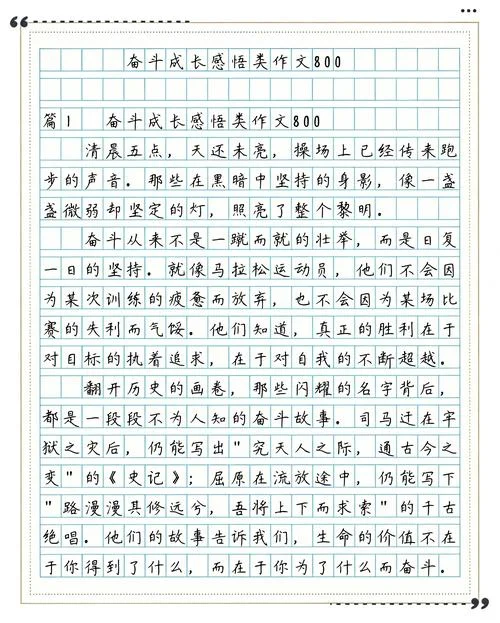 奋斗成长感悟类作文800
篇1 奋斗成长感悟类作文800
清晨五点，天还未亮，操场上已经传来跑
步的声音。那些在黑暗中坚持的身影，像一盏
盏微弱却坚定的灯，照亮了整个黎明。
奋斗从来不是一蹴而就的壮举，而是日复
一日的坚持。就像马拉松运动员，他们不会因
为某次训练的疲惫而放弃，也不会因为某场比
赛的失利而气馁。他们知道，真正的胜利在于
对目标的执着追求，在于对自我的不断超越。
翻开历史的画卷，那些闪耀的名字背后，
都是一段段不为人知的奋斗故事。司马迁在牢
狱之灾后，仍能写出"究天人之际，通古今之
变"的《史记》；屈原在流放途中，仍能写下
"路漫漫其修远兮，吾将上下而求索"的千古
绝唱。他们的故事告诉我们，生命的价值不在
于你得到了什么，而在于你为了什么而奋斗。